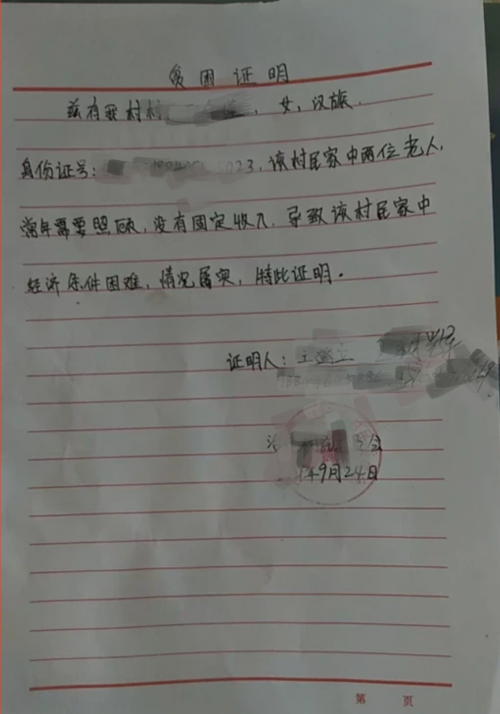 贫困证明
兹有我村村 ，女，汉族.
身份证号： 023，该村民家中两位老人，
常年需要照顾，没有固定收入，导致该村民家中
经济条件困难，情况属实，特此证明。
证明人：
年9月24日
第 页